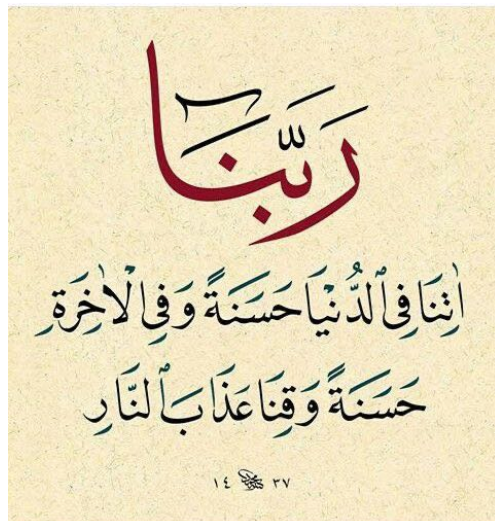 رَبَّنَا
اٰتِنَا فِى ٱلدُّنْيَا حَسَنَةً وَفِى ٱلْاٰخِرَةِ
حَسَنَةً وَقِنَا عَذَابَ ٱلنَّارِ
١٤ ٣٧